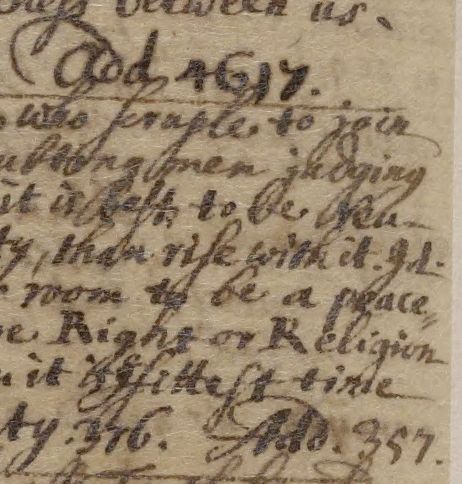 between us.
Add 4617.
who scruple to join
men judging
it is best to be Neu-
ty, than rise with it. Id.
room to be a peace
Right or Religion
it is fittest time
ty. 376. Add. 357.